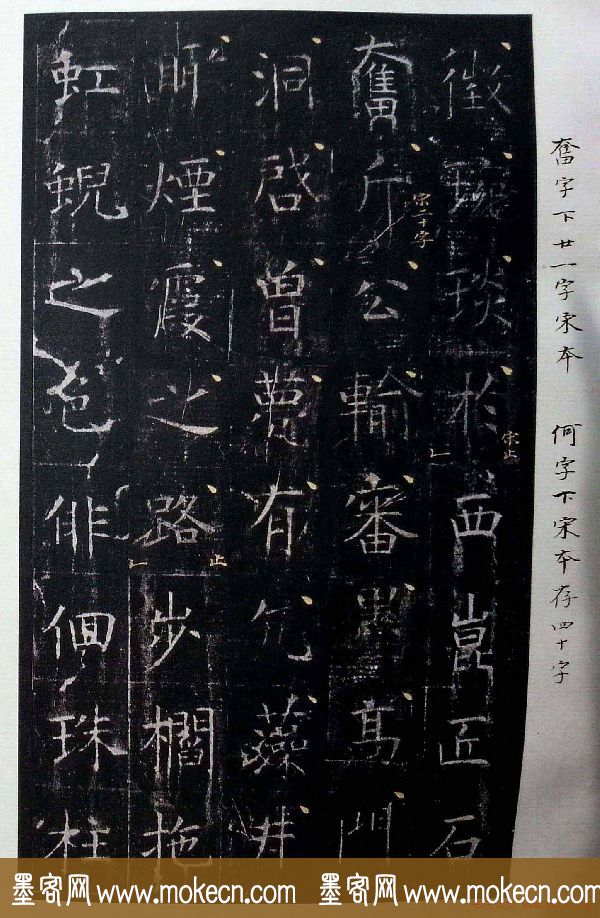 奮字下廿一字宋本　何字下宋本存四十字
徵琬琰於西崑匠石
宋止
奮斤公輸審高門
宋二十字
洞啓曾甍有亢藻井
煙霞之路步櫩拖
止
虹蜺之色俳佪珠柱
墨客网 www.mokecn.com 墨客网 www.mokecn.com